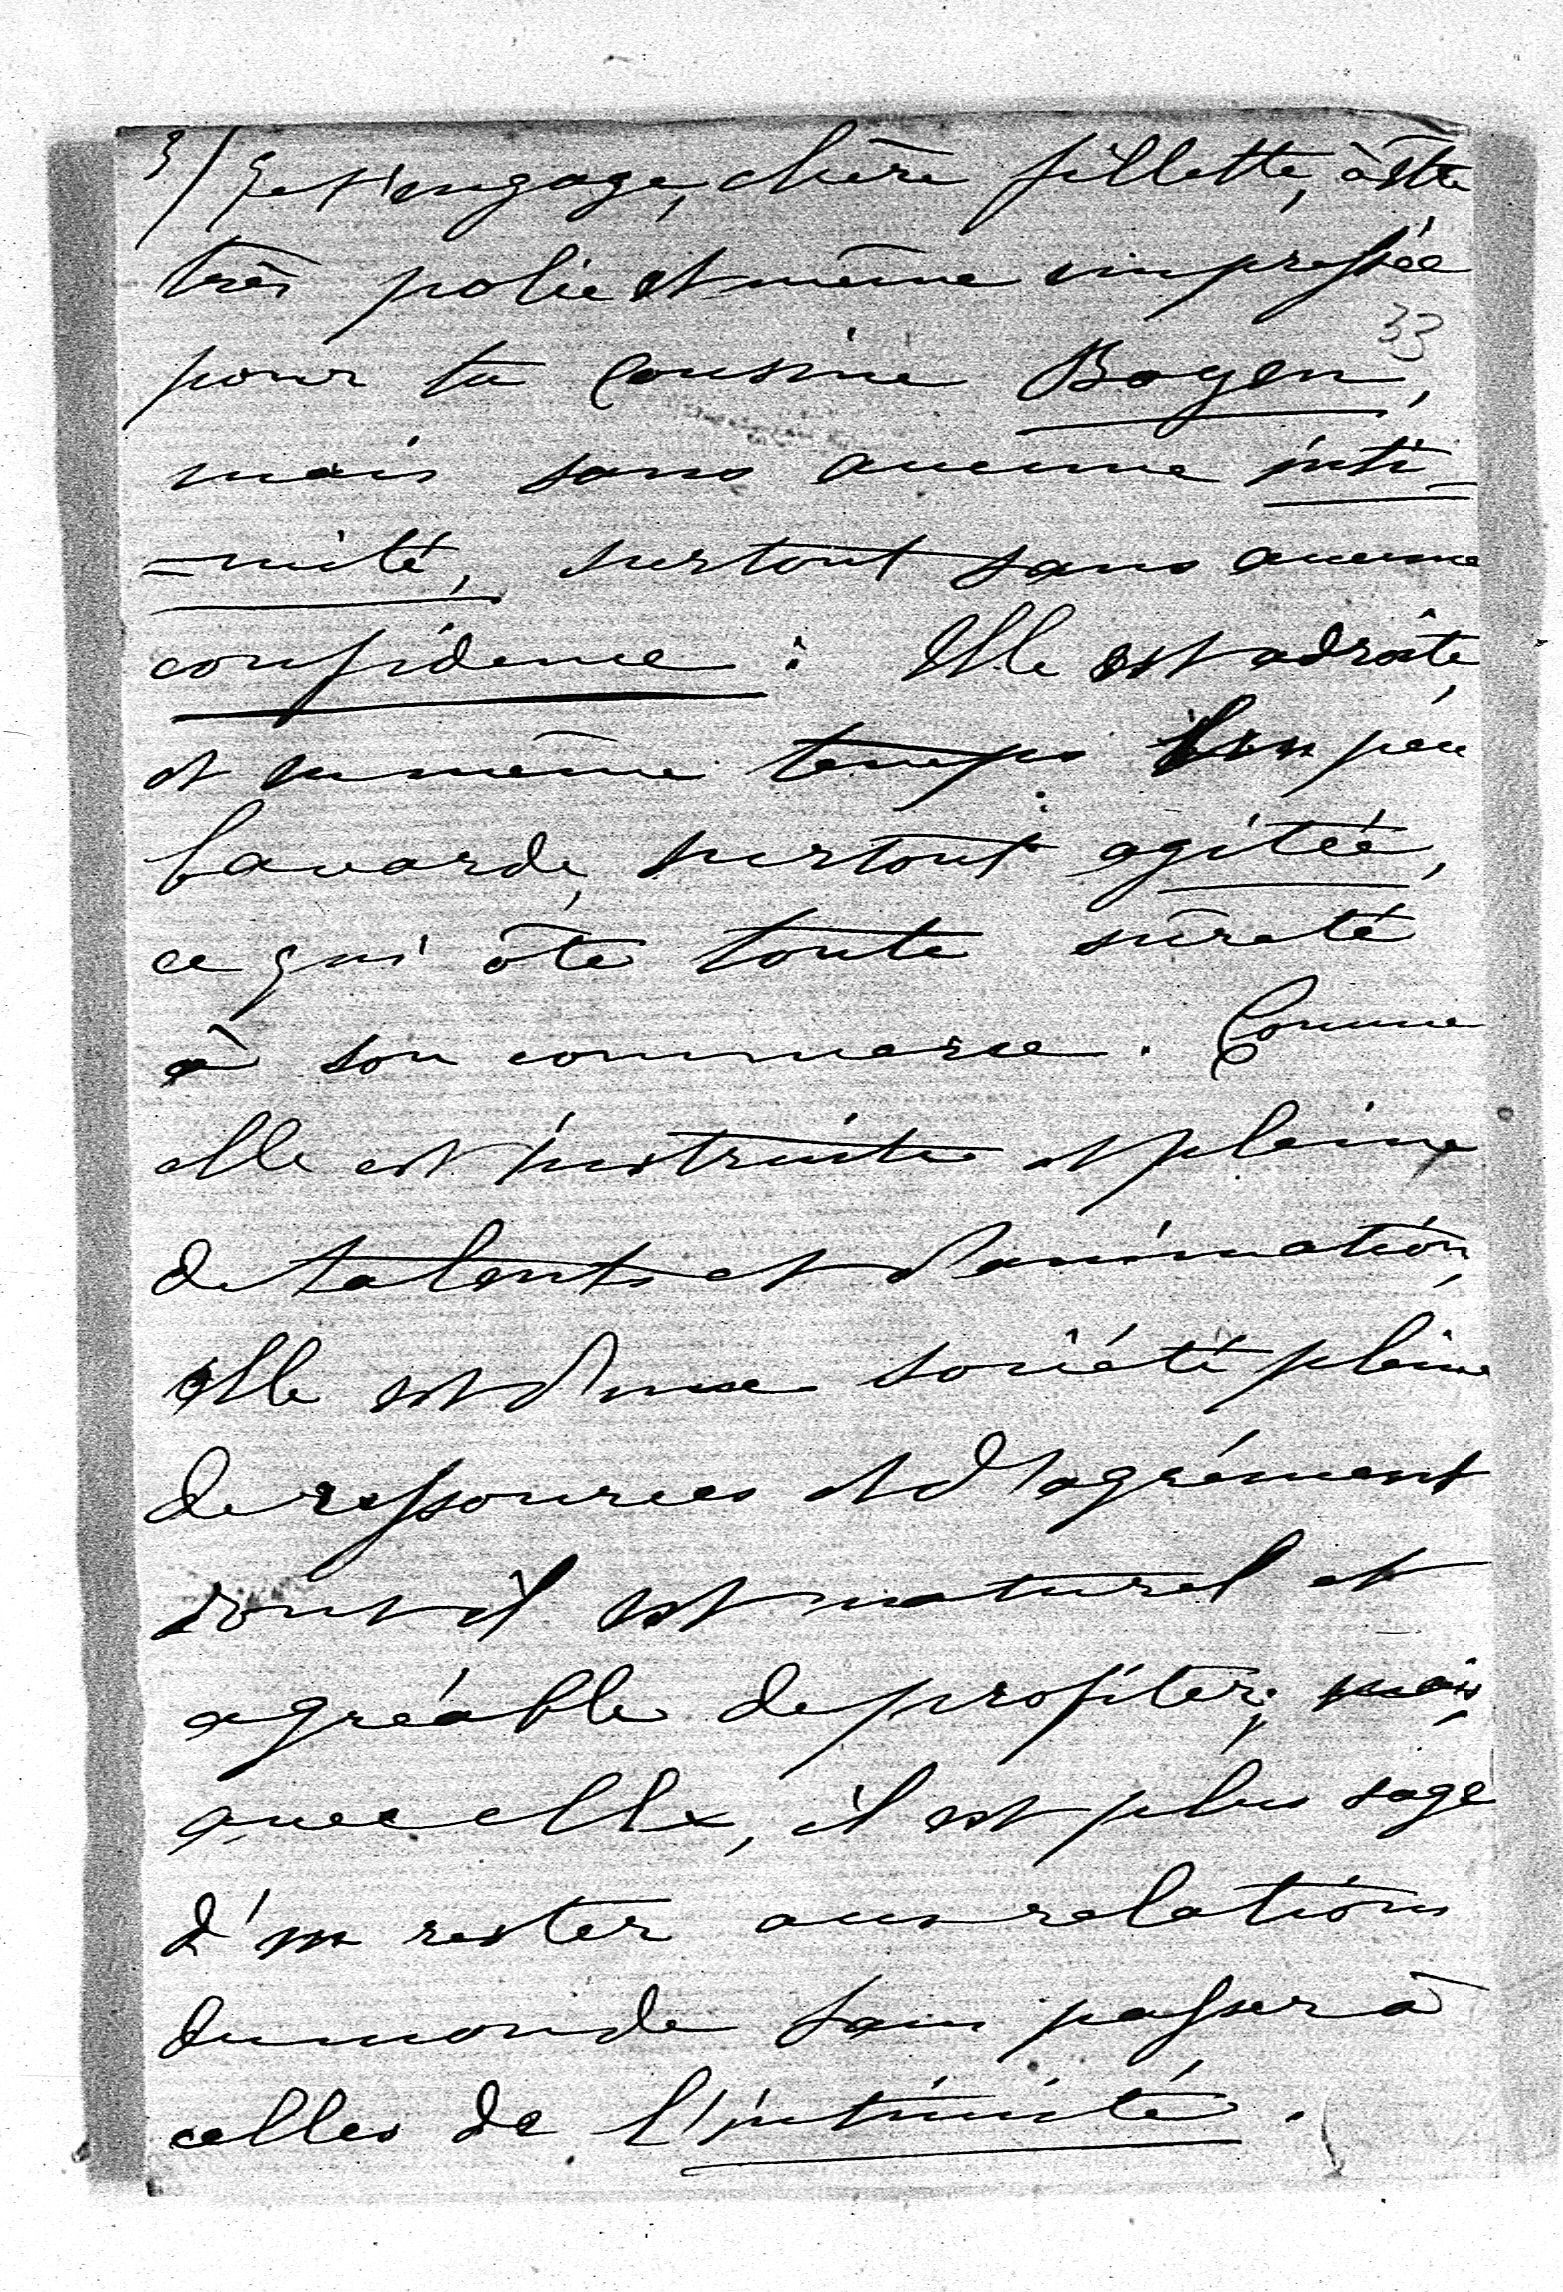 3/ Je t'engage, chère fillette, à être
très polie et même empressée
33
pour ta Cousine Boyen,
mais sans aucune inti-
=mité, surtout sans aucune
confidence : Elle est adroite,
et en même temps un peu
bavarde, surtout agitée,
ce qui ôte toute sûreté
à son commerce. Comme
elle est instruite et pleine
de talents et d'animation,
elle est d'une société pleine
de ressources et d'agrément
dont il est naturel et
agréable de profiter; mais,
avec elle, il est plus sage
d'en rester aux relations
du monde sans passer à
celles de l'intimité.